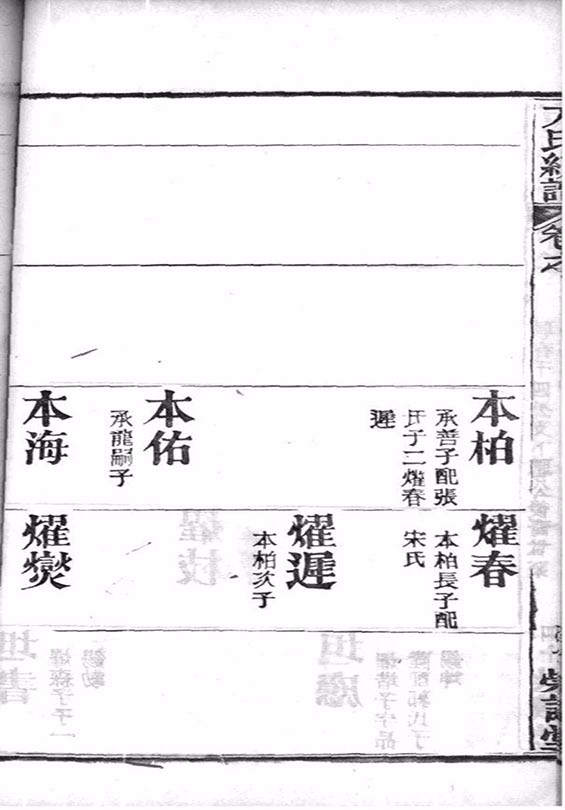 卷之
本柏
承善子配張
氏子二燿春
遲
本佑
承龍嗣子
本海
燿春
本柏長子配
宋氏
燿遲
本柏次子
燿爕